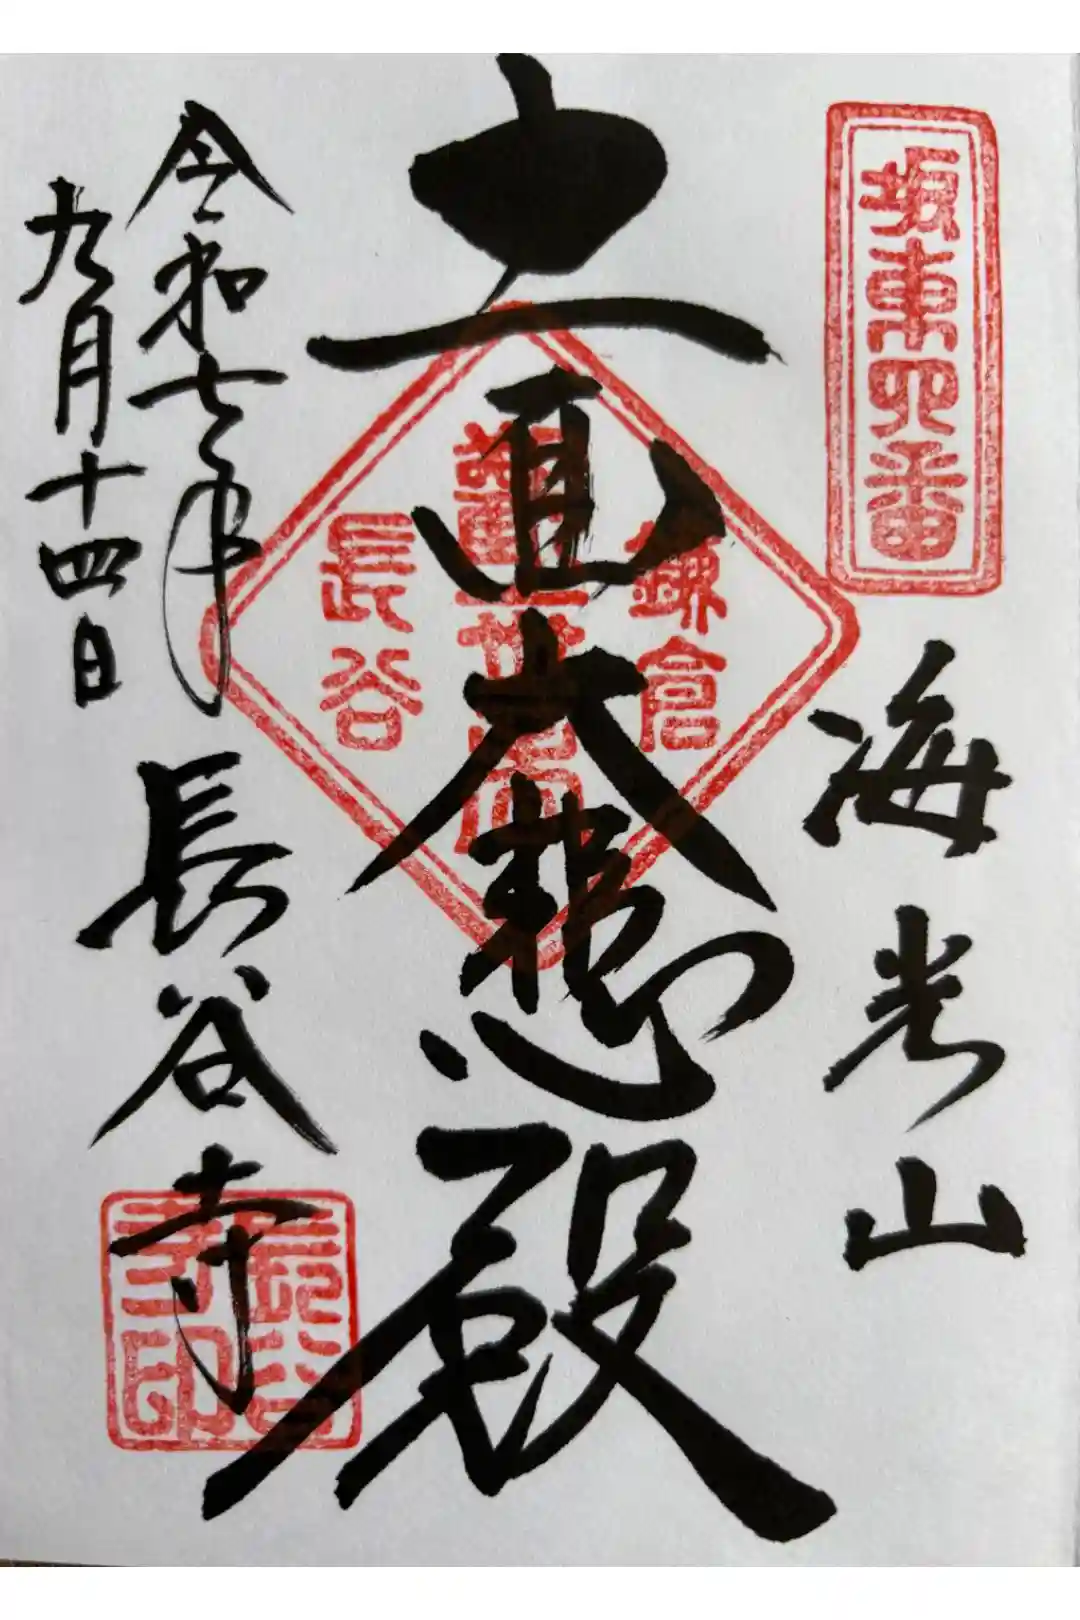 坂東四番
海光山
十一面大悲殿
鎌倉
長谷
令和七年
九月十四日
長谷寺
長谷
寺印